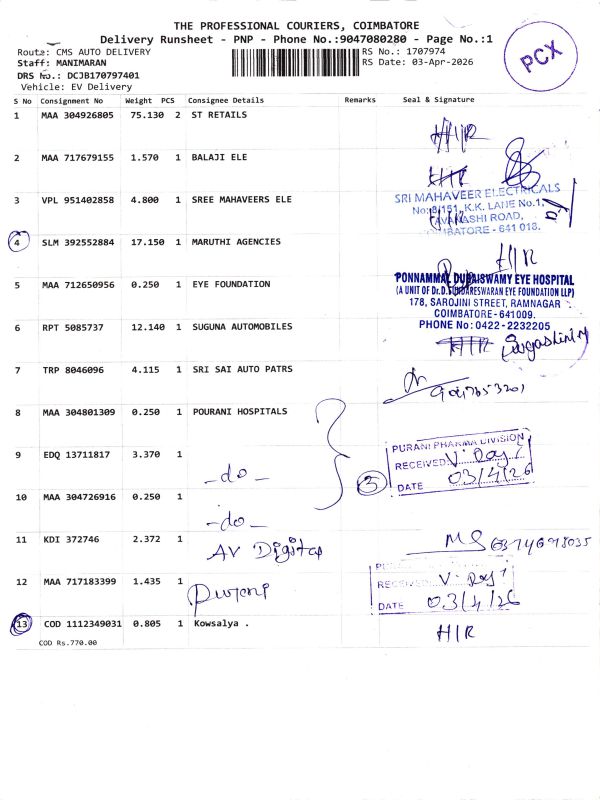 THE PROFESSIONAL COURIERS, COIMBATORE
Delivery Runsheet - PNP - Phone No.:9047080280 - Page No.:1
Route: CMS AUTO DELIVERY
RS No.: 1707974
Staff: MANIMARAN
RS Date: 03-Apr-2026
DRS No.: DCJB170797401
Vehicle: EV Delivery
PCX
S No Consignment No Weight PCS Consignee Details Remarks Seal & Signature
1 MAA 304926805 75.130 2 ST RETAILS H/R
2 MAA 717679155 1.570 1 BALAJI ELE
3 VPL 951402858 4.800 1 SREE MAHAVEERS ELE
SRI MAHAVEER ELECTRICALS
No: 8/151, K.K. LANE No.1,
ROAD,
COIMBATORE - 641 018.
4 SLM 392552884 17.150 1 MARUTHI AGENCIES H/R
5 MAA 712650956 0.250 1 EYE FOUNDATION
PONNAMMAL DURAISWAMY EYE HOSPITAL
(A UNIT OF Dr.D.SUNDARESWARAN EYE FOUNDATION LLP)
178, SAROJINI STREET, RAMNAGAR
COIMBATORE - 641009.
PHONE No: 0422 - 2232205
6 RPT 5085737 12.140 1 SUGUNA AUTOMOBILES
7 TRP 8046096 4.115 1 SRI SAI AUTO PATRS
8 MAA 304801309 0.250 1 POURANI HOSPITALS
9 EDQ 13711817 3.370 1 -do-
5
PURANI PHARMA DIVISION
RECEIVED
DATE 03/4/26
10 MAA 304726916 0.250 1 -do-
11 KDI 372746 2.372 1 AV Digital
12 MAA 717183399 1.435 1 Purani
RECEIVED
DATE 03/4/26
13 COD 1112349031 0.805 1 Kowsalya . H/R
COD Rs.770.00